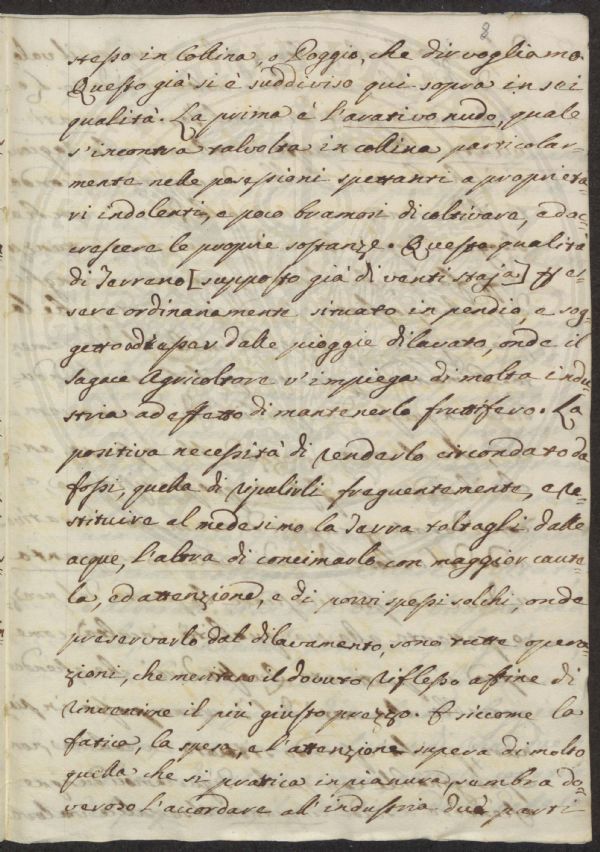 8
stesso in Collina, o Poggio, che dir vogliamo.
Questo già si è suddiviso qui sopra in sei
qualità. La prima è l'arativo nudo, quale
s'incontra talvolta in collina particolar-
mente nelle possessioni spettanti a proprieta=
ri indolenti, e poco bramosi di coltivare, ed ac=
crescere le proprie sostanze. Questa qualità
di Terreno [supposto già di venti staja] es=
sere ordinariamente situato in pendio, e sog=
getto ad esser dalle pioggie dilavato, onde il
sagace Agricoltore v'impiega di molta indu=
stria ad effetto di mantenerlo fruttifero. La
positiva necessità di renderlo circondato da
fossi, quella di ripulirli frequentemente, e re=
stituire al medesimo la Terra toltagli dalle
acque, l'altra di concimarlo con maggior caute=
la, ed attenzione, e di porvi spessi solchi, onde
preservarlo dal dilavamento, sono tutte opera=
zioni, che meritano il dovuto riflesso affine di
rinvenirne il più giusto prezzo. E siccome la
fatica, la spesa, e l'attenzione supera di molto
quella che si pratica in pianura, sembra do=
veroso l'accordare all'industria due parti